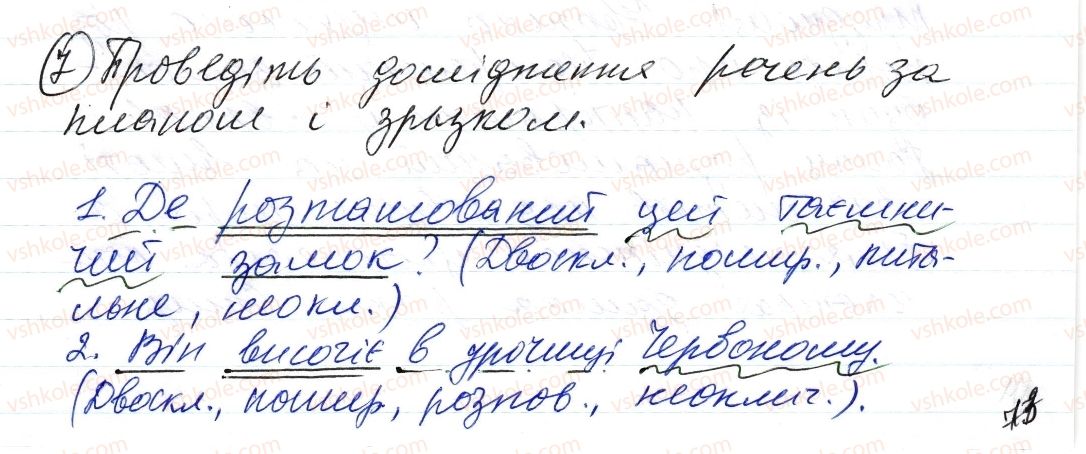 7) Проведіть дослідження речень за
планом і зразком.
1. Де розташований цей таємни-
чий замок? (Двоскл., пошир., пита-
льне, неокл.)
2. Він височіє в урочищі Червоному.
(Двоскл., пошир., розпов., неоклич.).